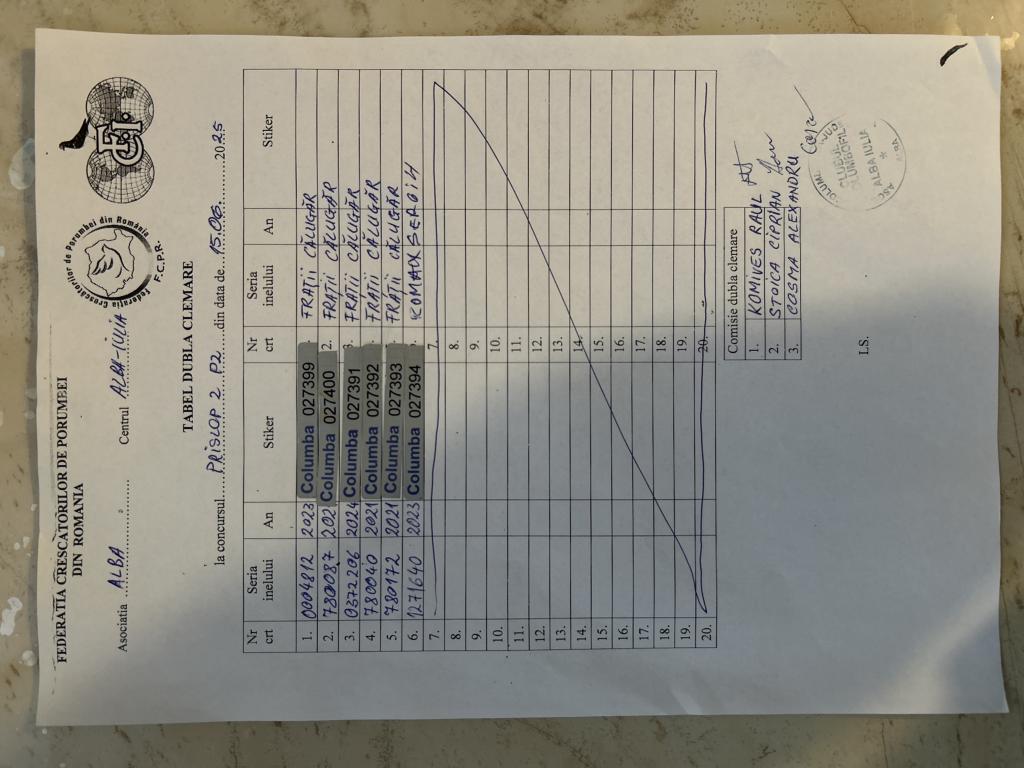 FEDERATIA CRESCATORILOR DE PORUMBEI
DIN ROMANIA
Federația Crescătorilor de Porumbei din România
F.C.P.R.
Asociatia ALBA Centrul ALBA-IULIA
TABEL DUBLA CLEMARE
la concursul PRISLOP 2 P2 din data de 15.06. 2025
Nr crt Seria inelului An Stiker Nr crt Seria inelului An Stiker
1. 0004812 2023 Columba 027399 FRAȚII CĂLUGĂR
2. 7800087 202 Columba 027400 2. FRAȚII CĂLUGĂR
3. 0372206 2024 Columba 027391 3. FRAȚII CĂLUGĂR
4. 780040 2021 Columba 027392 FRAȚII CĂLUGĂR
5. 780172 2021 Columba 027393 FRAȚII CĂLUGĂR
6. 1271640 2023 Columba 027394
7. 7.
8. 8.
9. 9.
10. 10.
11. 11.
12. 12.
13. 13.
14. 14.
15. 15.
16. 16.
17. 17.
18. 18.
19. 19.
20. 20.
Comisie dubla clemare
1. KOMIVES RAUL
2. STOICA CIPRIAN
3. COSMA ALEXANDRU
CLUBUL
ALBA IULIA
L.S.